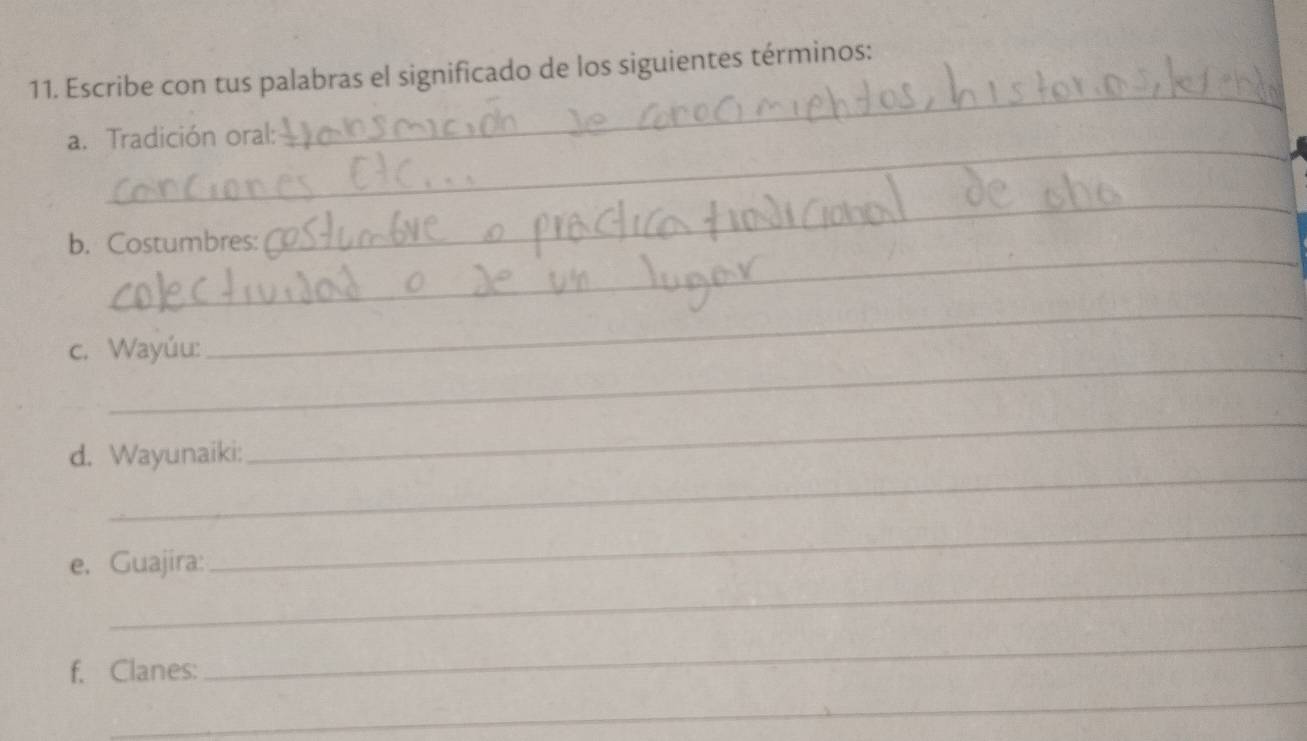 11. Escribe con tus palabras el significado de los siguientes términos:
a. Tradición oral: transmición de conocimientos, historias, leyenda
canciones Etc...
b. Costumbres: costumbre o practica tradicional de una
colectividad o de un lugar
c. Wayúu:
d. Wayunaiki:
e. Guajira:
f. Clanes: